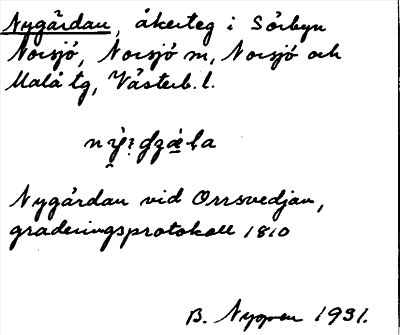 Nygärdan, åkerteg i Sörbyn
Norsjö, Norsjö sn, Norsjö och
Malå tg, Västerb. l.
Nygärdan vid Orrsvedjan,
graderingsprotokoll 1810
B. Nygren 1931.